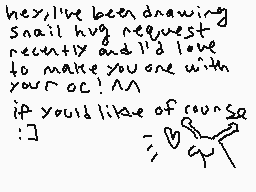 hey, I've been drawing
snail hug request
recently and I'd love
to make you one with
your oc! ^^
if you'd like of course
:]